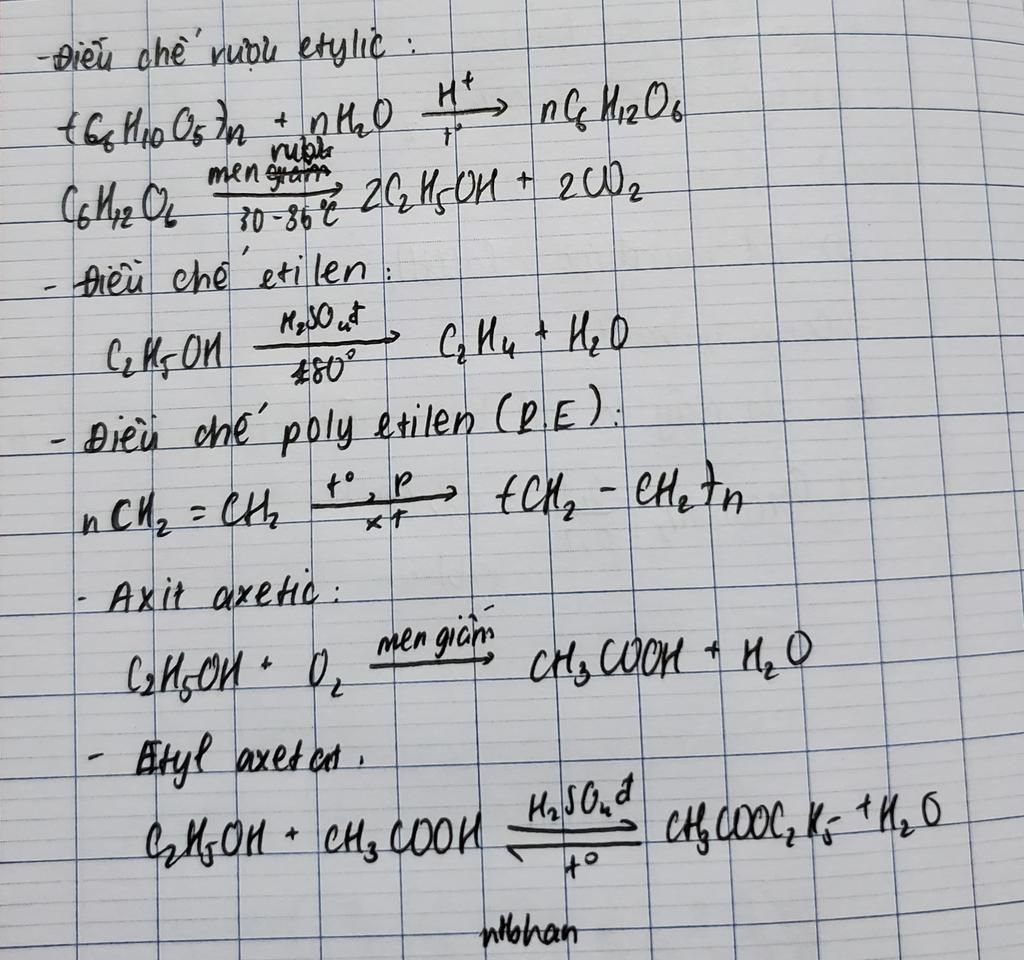 - Điều chế rượu etylic :
(C6H10O5)n + nH2O H+ → t° nC6H12O6
C6H12O6 men rượu → 30-36°C 2C2H5OH + 2CO2
- Điều chế etilen :
C2H5OH H2SO4đ → 180° C2H4 + H2O
- Điều chế poly etilen (PE) :
nCH2 = CH2 t°, P → xt (CH2 - CH2)n
- Axit axetic :
C2H5OH + O2 men giấm → CH3COOH + H2O
- Etyl axetat.
C2H5OH + CH3COOH H2SO4đ ⇌ t° CH3COOC2H5 + H2O